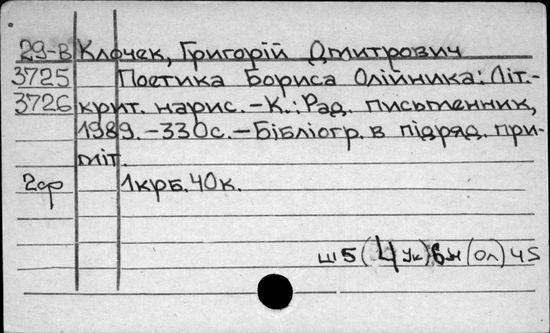 29-В Клочек, Григорій Дмитрович
3725 Поетика Бориса Олійника: Літ.-
3726 крит. нарис.-К.: Рад. письменник,
1989.-330с.-Бібліогр. в підряд. при-
міт.
2ср 1крб.40к.
Ш5(4Ук)6-4(Ол)45